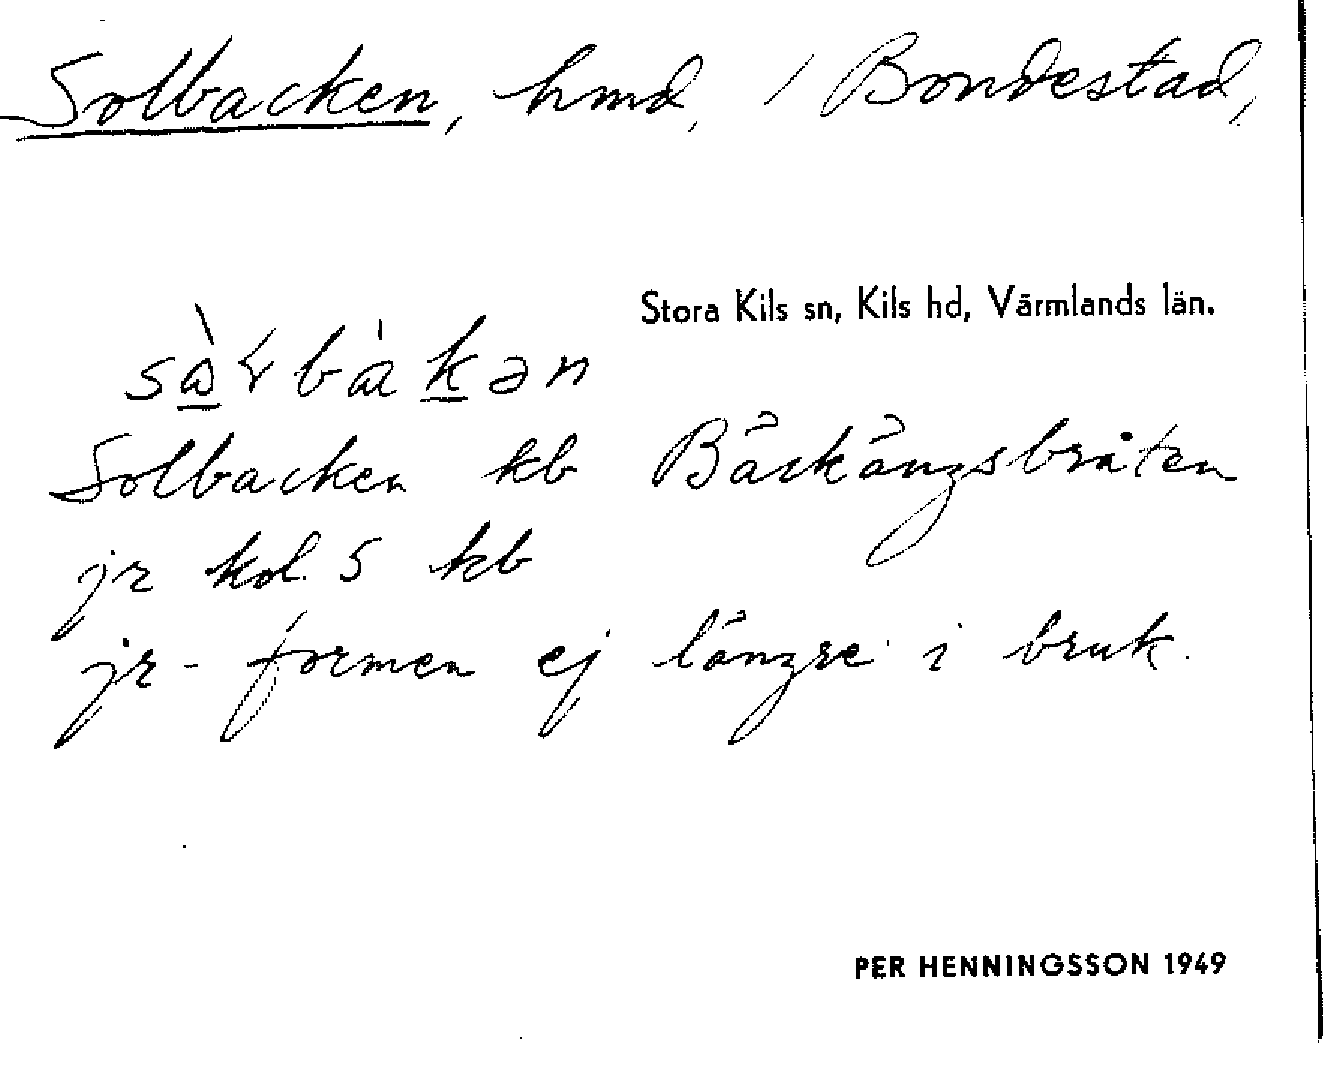 Solbacken, hmd, / Bondestad,
Stora Kils sn, Kils hd, Värmlands län.
Solbacken kb Bäckängsbråten
jr kol. 5 kb
jr-formen ej längre i bruk.
PER HENNINGSSON 1949